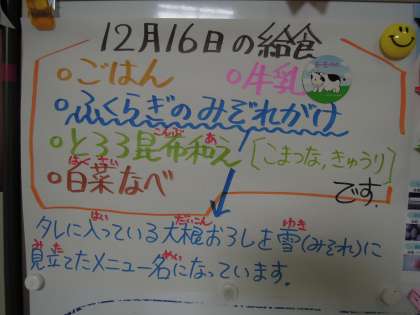 12月16日の給食
○ごはん ○牛乳
○ふくらぎのみぞれがけ
○とろろ昆布和え[こまつな、きゅうり]
○白菜なべ
です。
タレに入っている大根おろしを雪(みぞれ)に
見立てたメニュー名になっています。